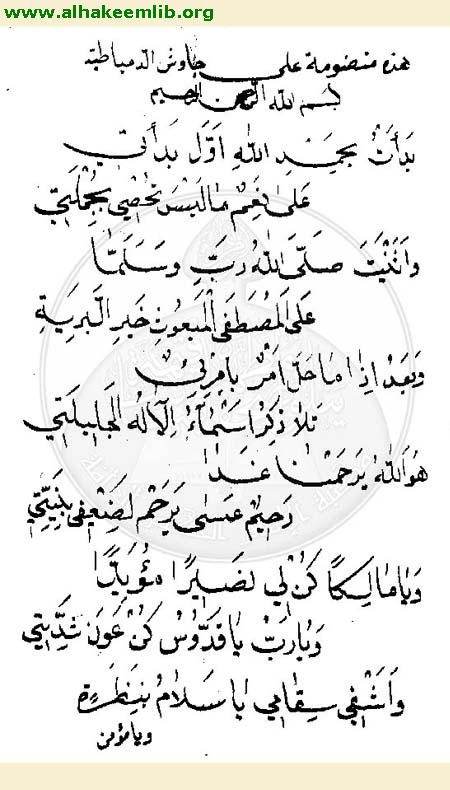 www.alhakeemlib.org
هذه منضومة على جاوش الدمياطية
بسم الله الرحمن الرحيم
بَدَأتُ بحَمْدِ اللهِ اَوَّل بَدأتي
عَلىٰ نِعَمٍ مٰا لَيْسَ تُحْصٰى بجُمْلَتي
وَاَثْنَيْتَ صَلّىَ اللهُ رَبِّ وسَلّمٰا
عَلَى المُصْطَفىٰ المَبعُوثِ خَيرِ البَرِيةِ
وَبَعدُ اِذٰا مٰا حَلَّ اَمرٌ بٱمْرئٍ
تَلاٰ ذِكرَ اَسْمٰاءُ اِلاٰلٰه الجَليلَتي
هُوَ اللهُ يَرحَمْنٰا غَدٰا
رَحيمٌ عَسىٰ يَرحَم لضَعْفي بِنيَّتي
وَيٰا مٰالِكاً كُنْ لي نَصيراً مُؤَيّدًا
وَيٰا رَبّ يٰا قدُّوسُ كُنْ عَونَ شدَّتي
وَاَشْفي سِقٰامي يٰا سَلاٰمُ بنَظرَةٍ
ويامؤمن